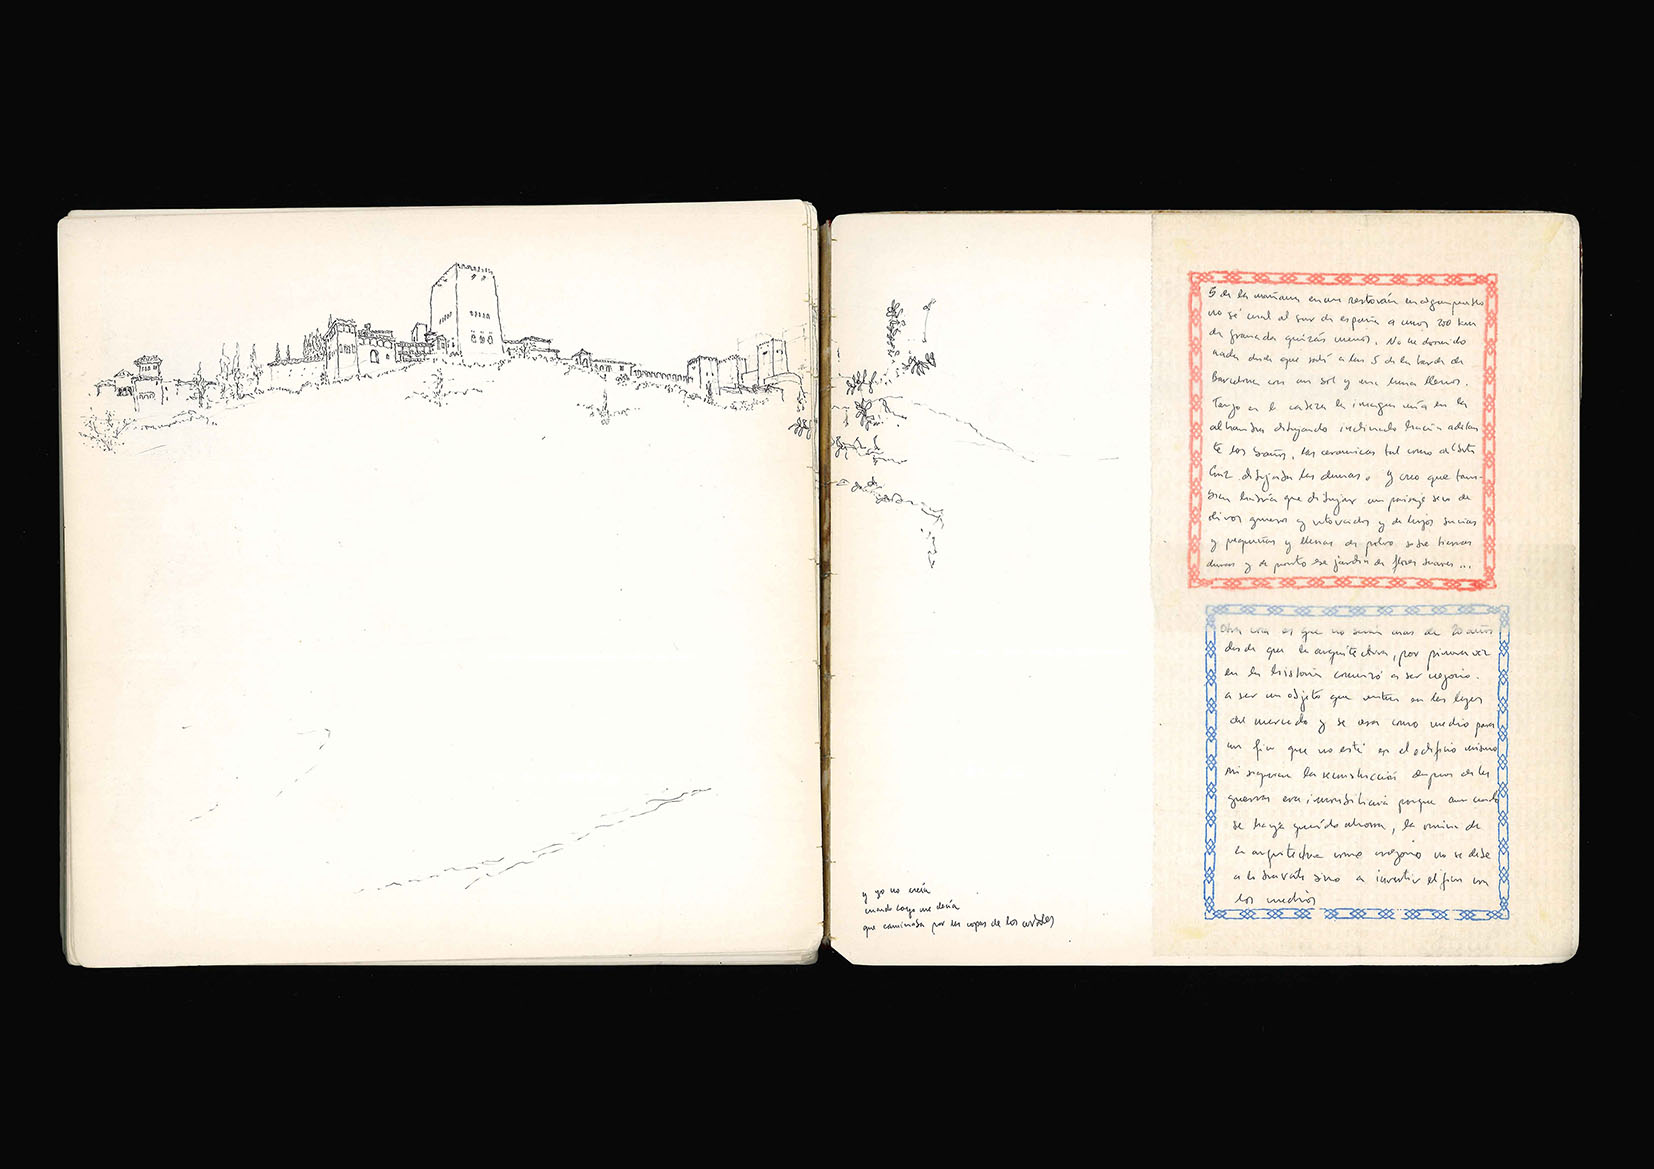 5 de la mañana en un restorán en algun pueblo
no sé cual al sur de españa a unos 200 km
de granada quizás menos. No he dormido
nada desde que salí a las 5 de la tarde de
Barcelona con un sol y una luna llenos.
Tengo en la cabeza la imagen mía en la
alhambra dibujando inclinado hacia adelan
te los baños, las cerámicas tal como
Cruz dibujaba las dunas. Y creo que tam-
bien habría que dibujar un paisaje seco de
olivos gruesos y retorcidos y de hojas sucias
y pequeñas y llenas de polvo sobre tierras
duras y de pronto ese jardín de flores suaves...
Otra cosa es que no serán mas de 20 años
desde que la arquitectura, por primera vez
en la historia comenzó a ser negocio.
a ser un objeto que entra en las leyes
del mercado y se usa como medio para
un fin que no está en el edificio mismo
ni siquiera la reconstrucción despues de las
guerras era inmobiliaria porque aun cuando
se haya querido ahorrar, la ruina de
la arquitectura como negocio no se debe
a lo barato sino a invertir el fin con
los medios
y yo no creía
cuando Coyo me decía
que caminaba por las copas de los arboles